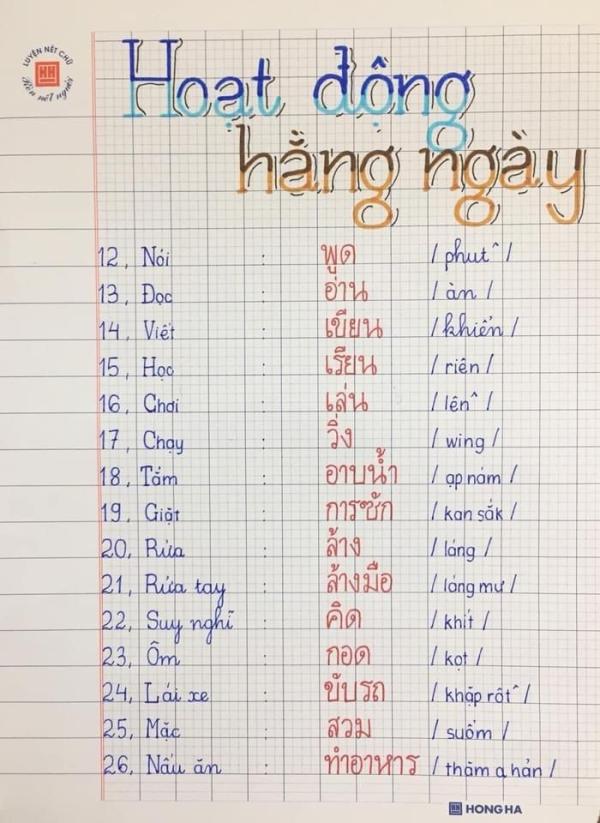 LUYỆN NÉT CHỮ
Rèn nết người
Hoạt động
hằng ngày
12, Nói : พูด / phut^ /
13, Đọc : อ่าน / àn /
14, Viết : เขียn / khiển /
15, Học : เรียน / riên /
16, Chơi : เล่น / lên^ /
17, Chạy : วิ่ง / wing /
18, Tắm : อาบน้ำ / ạp nám /
19, Giặt : การซัก / kan sắk /
20, Rửa : ล้าง / láng /
21, Rửa tay : ล้างมือ / láng mư /
22, Suy nghĩ : คิด / khít /
23, Ôm : กอด / kọt /
24, Lái xe : ขับรถ / khặp rốt^ /
25, Mặc : สวม / suổm /
26, Nấu ăn : ทำอาหาร / thăm a hản /
HONG HA